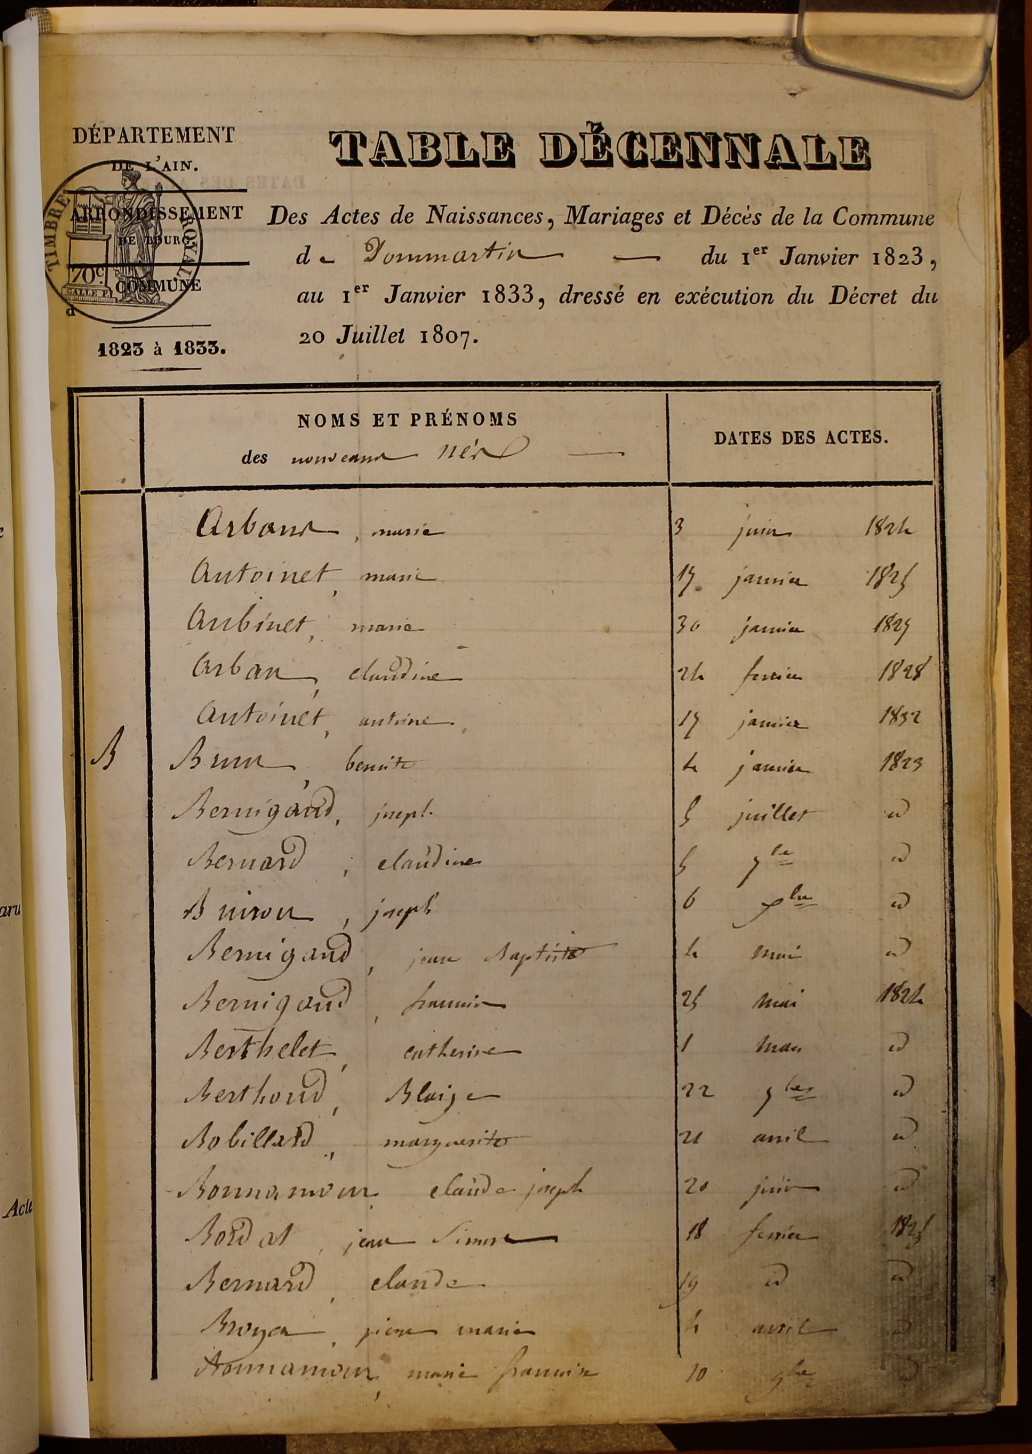 DÉPARTEMENT
DE L'AIN.
ARRONDISSEMENT
DE BOURG
COMMUNE
d
1823 à 1833.
TIMBRE ROYAL
70c
TABLE DÉCENNALE
Des Actes de Naissances, Mariages et Décès de la Commune
de Dommartin — du 1er Janvier 1823,
au 1er Janvier 1833, dressé en exécution du Décret du
20 Juillet 1807.
NOMS ET PRÉNOMS
des nouveaux nés —
DATES DES ACTES.
Arban, marie 3 juin 1824
Antoinet, marie 17 janvier 1825
Aubinet, marie 30 janvier 1827
Arban, claudine 24 fevrier 1828
Antoinet, antoine 17 janvier 1832
B Brun, benoite 4 janvier 1823
Bernigaud, joseph 5 juillet id
Bernard, claudine 5 id
Buiron, joseph 6 id
Bernigaud, jean Baptiste 4 mai id
Bernigaud, 25 mai 1824
Berthelet, catherine 1 mars id
Berthoud, Blaise 22 id
Robillard, marguerite 21 avril id
Bonnamour claude joseph 20 juin id
Bordat, jean Simon 18 fevrier 1825
Bernard, claude 19 id id
Broyer, pierre marie 4 avril id
Bonnamour, marie francoise 10 id
Acte